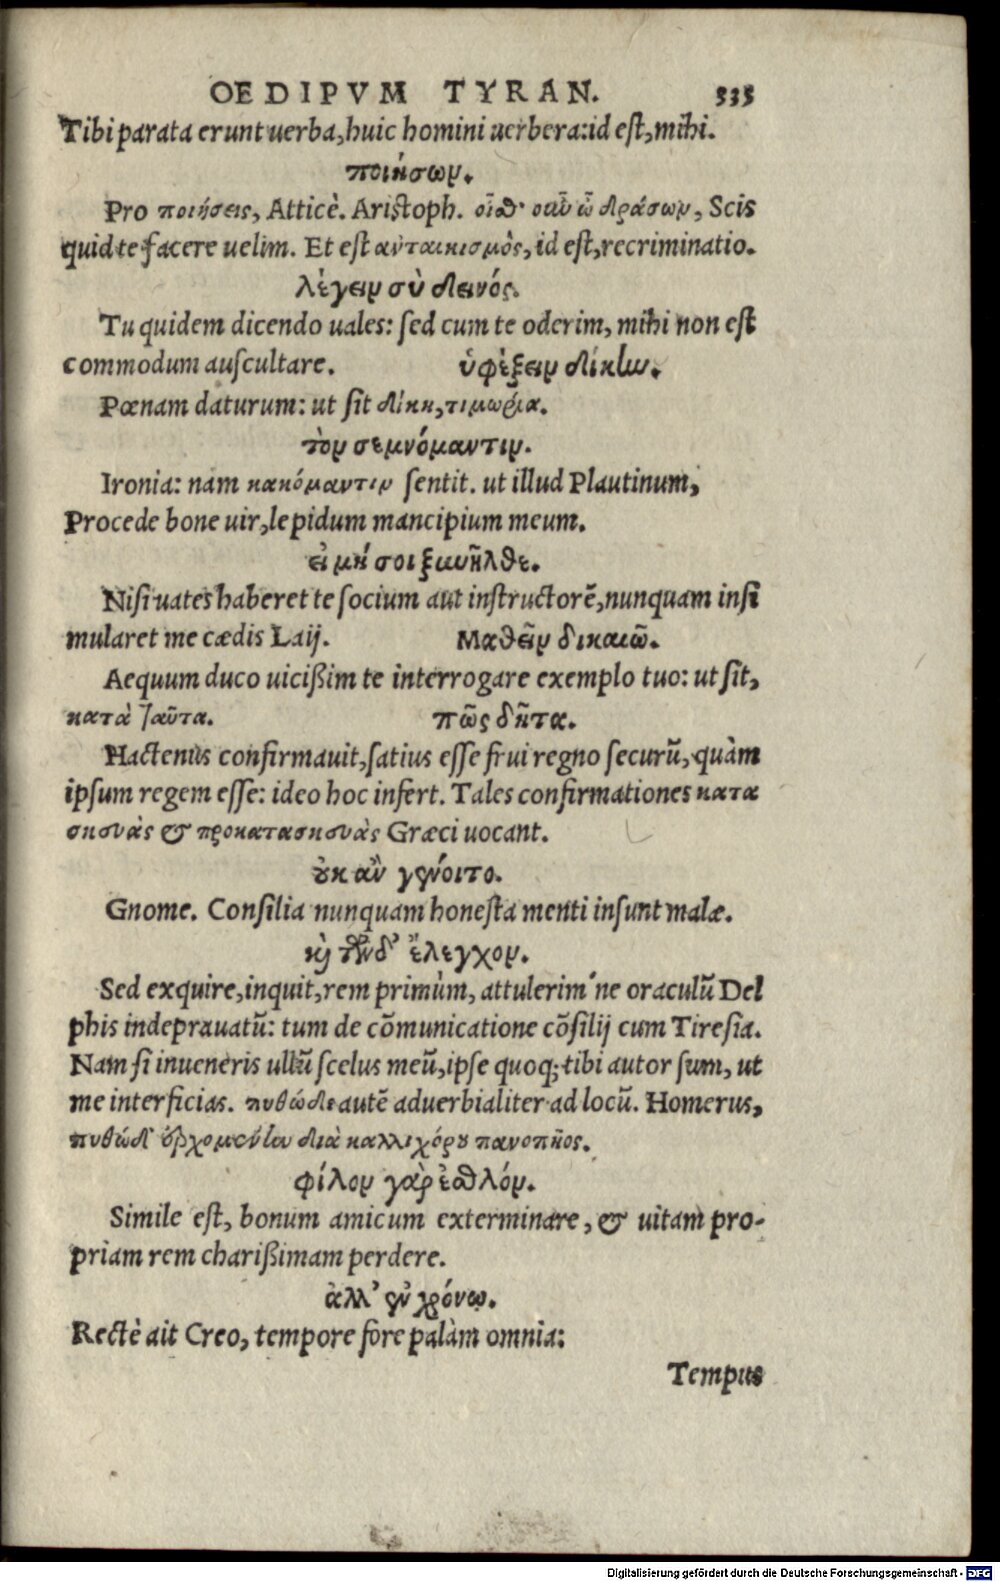 OEDIPVM TYRAN. 535
Tibi parata erunt uerba, huic homini uerbera: id est, mihi.
ποίησον.
Pro ποιήσεις, Atticè. Aristoph. οἶσθ᾽ οὖν ὧ δράσων, Scis
quid te facere uelim. Et est ἀνταικισμὸς, id est, recriminatio.
λέγειν σὺ δεινός.
Tu quidem dicendo uales: sed cum te oderim, mihi non est
commodum auscultare. ὑφέξειν δίκην.
Pœnam daturum: ut sit δίκη, τιμωρία.
τὸν σεμνόμαντιν.
Ironia: nam κακόμαντιν sentit. ut illud Plautinum,
Procede bone uir, lepidum mancipium meum.
εἰ μή σοι ξυνῆλθε.
Nisi uates haberet te socium aut instructorē, nunquam insi
mularet me cædis Laij. Μαθεῖν δικαιῶ.
Aequum duco uicißim te interrogare exemplo tuo: ut sit,
κατὰ ταῦτα. πῶς δῆτα.
Hactenus confirmauit, satius esse frui regno securū, quàm
ipsum regem esse: ideo hoc infert. Tales confirmationes κατα
σκευὰς & προκατασκευὰς Græci uocant.
οὐκ ἂν γένοιτο.
Gnome. Consilia nunquam honesta menti insunt malæ.
καὶ τῶνδ᾽ ἔλεγχον.
Sed exquire, inquit, rem primùm, attulerim´ne oraculū Del
phis indeprauatū: tum de cōmunicatione cōsilij cum Tiresia.
Nam si inueneris ullū scelus meū, ipse quoq; tibi autor sum, ut
me interficias. πυθώδε autē aduerbialiter ad locū. Homerus,
πυθώδ᾽ ἐρχομένην διὰ καλλιχόρου πανοπῆος.
φίλον γὰρ ἐσθλόν.
Simile est, bonum amicum exterminare, & uitam pro-
priam rem charißimam perdere.
ἀλλ᾽ ἐν χρόνῳ.
Rectè ait Creo, tempore fore palàm omnia:
Tempus
Digitalisierung gefördert durch die Deutsche Forschungsgemeinschaft - DFG